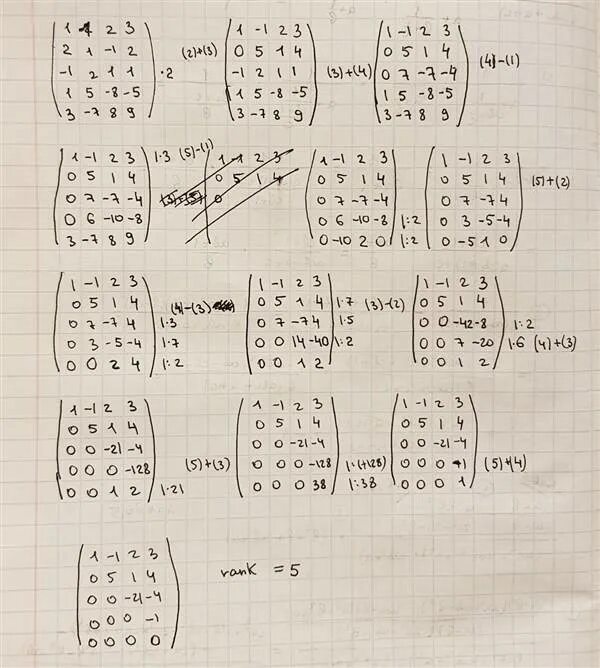 1 -1 2 3      1 -1 2 3      1 -1 2 3
2 1 -1 2 (2)+(3) 0 5 1 4      0 5 1 4
-1 2 1 1 ·2 -1 2 1 1 (3)+(4) 0 7 -7 -4 (4)-(1)
1 5 -8 -5      1 5 -8 -5      1 5 -8 -5
3 -7 8 9      3 -7 8 9      3 -7 8 9
1 -1 2 3 |·3 (5)-(1) 1 -1 2 3      1 -1 2 3      1 -1 2 3
0 5 1 4      0 5 1 4      0 5 1 4      0 5 1 4 (5)+(2)
0 7 -7 -4      0      0 7 -7 -4      0 7 -7 4
0 6 -10 -8      0 6 -10 -8 |:2 0 3 -5 -4
3 -7 8 9      0 -10 2 0 |:2 0 -5 1 0
1 -1 2 3      1 -1 2 3      1 -1 2 3
0 5 1 4 (4)-(3) 0 5 1 4 |·7 (3)-(2) 0 5 1 4
0 7 -7 4 |·3 0 7 -7 4 |·5 0 0 -42 -8 |:2
0 3 -5 -4 |·7 0 0 14 -40 |:2 0 0 7 -20 |·6 (4)+(3)
0 0 2 4 |:2 0 0 1 2      0 0 1 2
1 -1 2 3      1 -1 2 3      1 -1 2 3
0 5 1 4      0 5 1 4      0 5 1 4
0 0 -21 -4      0 0 -21 -4      0 0 -21 -4
0 0 0 -128 (5)+(3) 0 0 0 -128 |:(+128) 0 0 0 -1 (5)+(4)
0 0 1 2 |·21 0 0 0 38 |:38 0 0 0 1
1 -1 2 3
0 5 1 4 rank = 5
0 0 -21 -4
0 0 0 -1
0 0 0 0